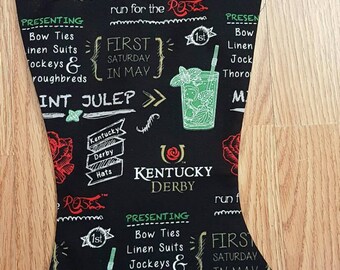 run for the ROSES
PRESENTING
Bow Ties
Linen Suits
Jockeys &
Thoroughbreds
{FIRST
SATURDAY
IN MAY}
1st
PRESENTING
Bow Ties
Linen Suits
Jockeys
MINT JULEP >>
Kentucky
Derby
Hats
KENTUCKY
DERBY
run for the
PRESENTING
Bow Ties
Linen Suits
Jockeys &
1st
{FIRST
SATURDAY
IN MAY